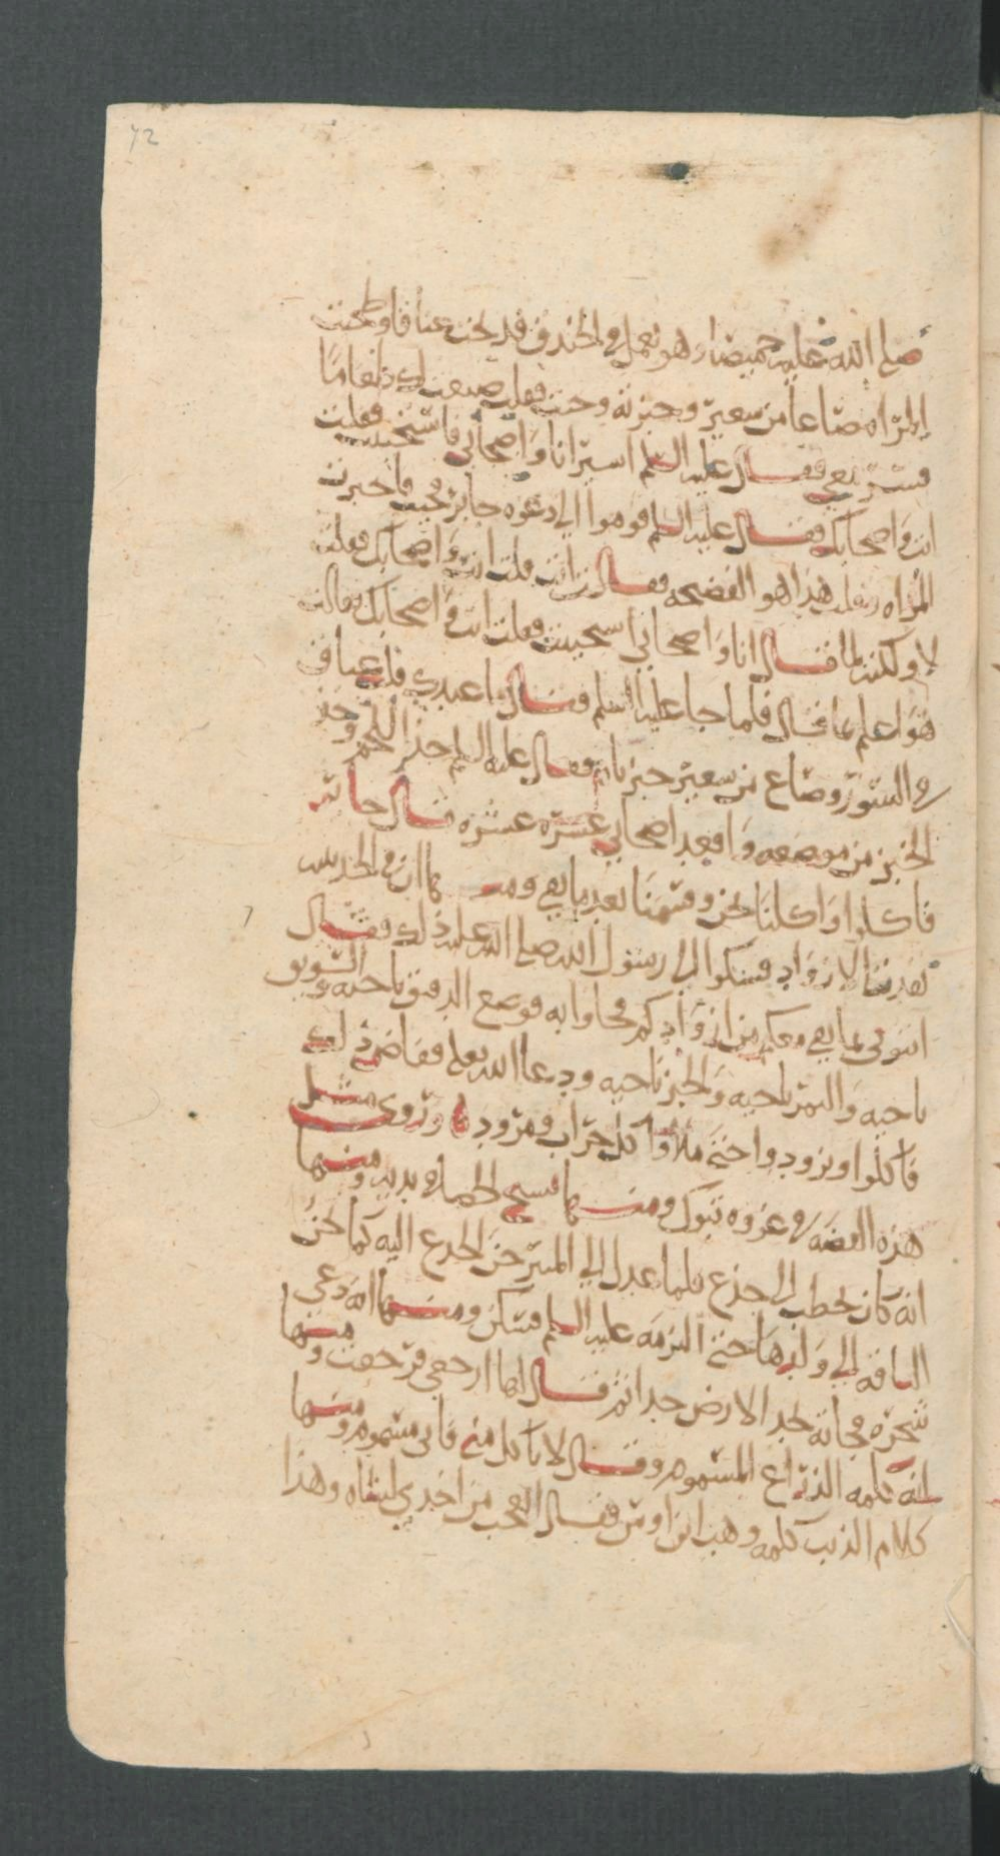 72
صلى الله عليه خميصا وهو يعمل في الخندق فذبحت عناقا وطحنت
المراه صاعا من شعير وخبزته وجئت فقلت صنعت لك طعاما
فسر معي فقال عليه السلم اسير انا واصحابي فاستحييت فقلت
انت واصحابك فقال عليه السلم قوموا الى دعوه جابر فجيت فاخبرت
المراه فقلت هذا هو الفضيحه فقالت انت قلت انت واصحابك فقلت
لا ولكنه لما قال انا واصحابي استحييت فقلت انت واصحابك فقالت
هو اعلم بما قال فلما جا عليه السلم فقال ما عندك قلت عناق
في التنور وصاع من شعير خبزناه فقال عليه السلم خذ اللحم وخذ
الخبز من موضعه واقعد اصحابي عشره عشره قال جابر
فاكلوا واكلنا نحن وقسمنا بعد ما بقي ومنها ان في الخندق
نفدتنا الازواد فشكوا الى رسول الله صلى الله عليه ذلك فقال
ايتوني بما بقي معكم من ازوادكم فجاوا به فوضع الدقيق ناحيه والسويق
ناحيه والتمر ناحيه والخبز ناحيه ودعا الله تعالى ففاض ذلك
فاكلوا وتزودوا حتى ملاوا كل جراب ومزود وروي مثل
هذه القصه في غزوه تبوك ومنها تسبيح الحصا في يديه ومنها
انه كان يخطب الى جذع فلما عدل الى المنبر حن الجذع اليه كما تحن
الناقه الى ولدها حتى التزمه عليه السلم فسكن ومنها انه دعى
شجره فجاته تخد الارض خدا ثم قال لها ارجعي فرجعت ومنها
انه كلمه الذراع المسموم وقال لا تاكل مني فاني مسموم ومنها
كلام الذيب كلمه وهب ابن اوس فقال العجب من اخذي لشاه وهذا